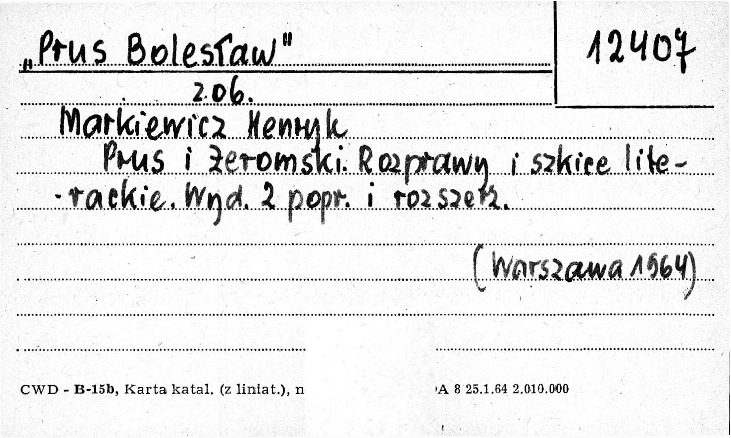 „Prus Bolesław"
12407
z.06.
Markiewicz Henryk
Prus i Żeromski. Rozprawy i szkice lite-
-rackie. Wyd. 2 popr. i rozszerz.
(Warszawa 1964)
CWD - B-15b, Karta katal. (z liniat.), n
A 8 25.1.64 2.010.000